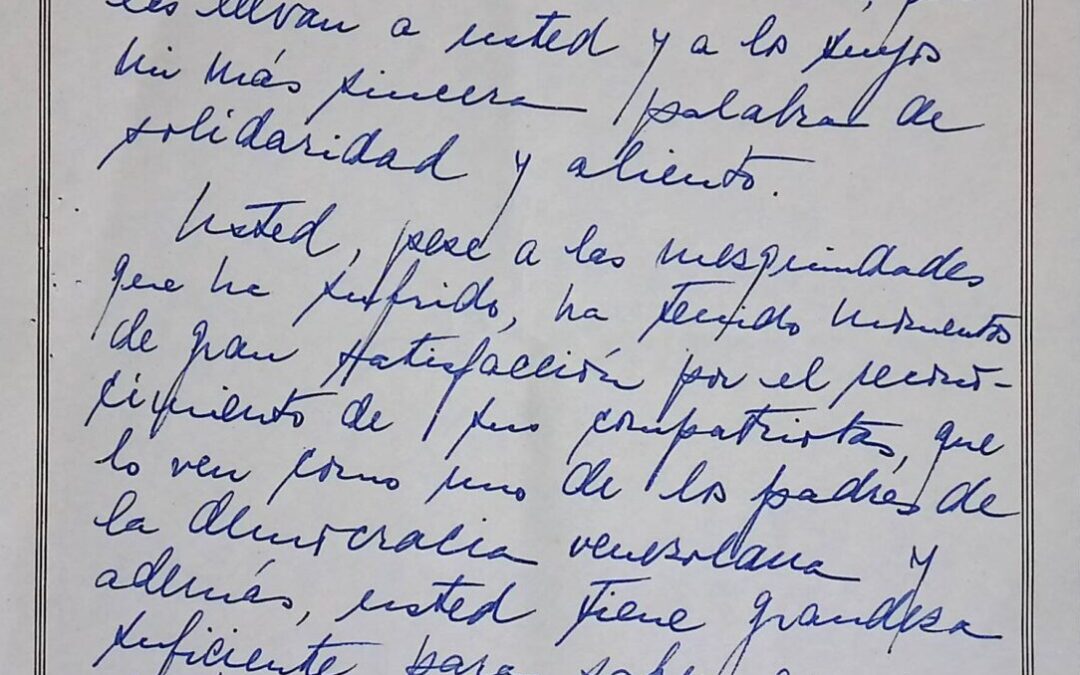 les llevan a usted y a los suyos
mi más sincera palabra de
solidaridad y aliento.
Usted, pese a las mesquindades
que ha sufrido, ha tenido momentos
de gran satisfacción por el recono-
cimiento de sus compatriotas, que
lo ven como uno de los padres de
la democracia venezolana y
además, usted tiene grandeza
suficiente para